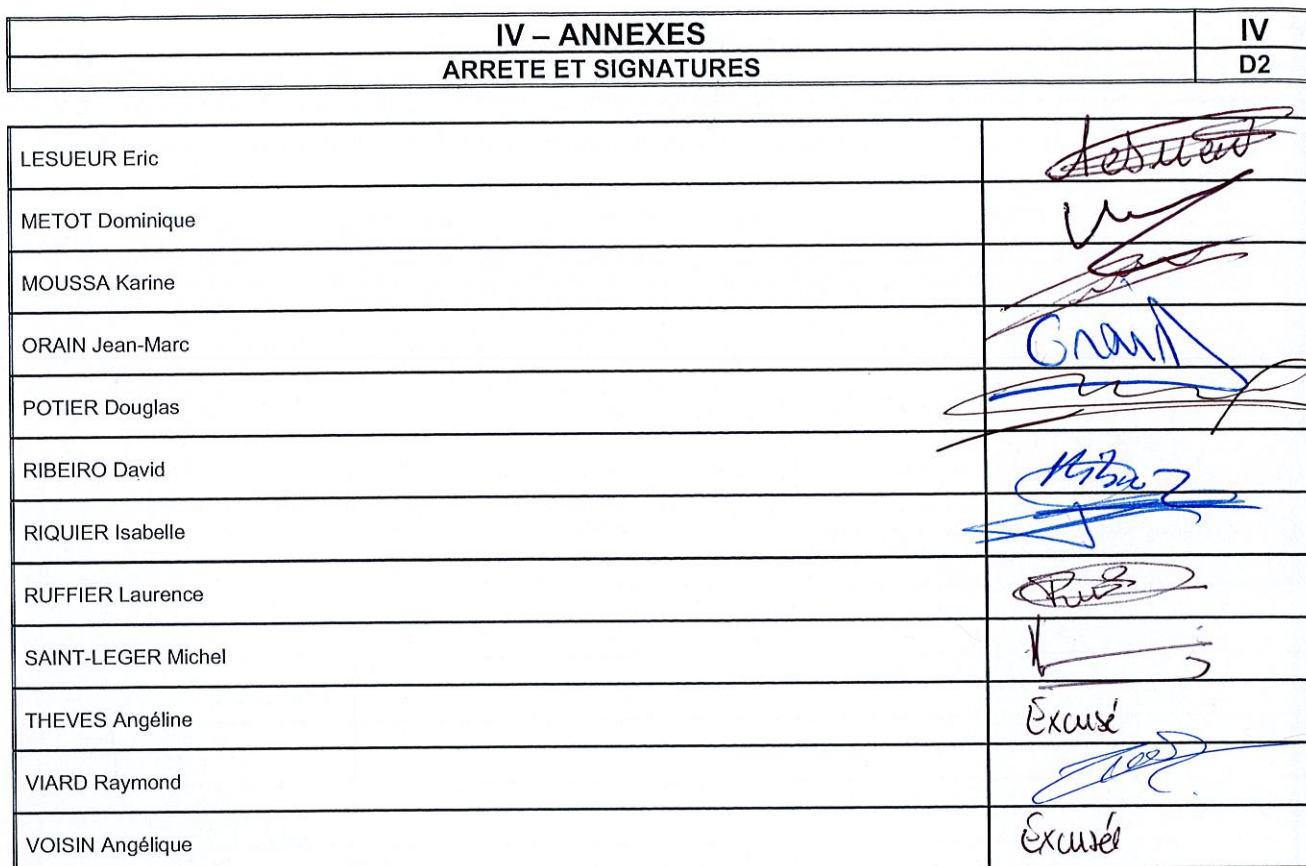 IV – ANNEXES IV
ARRETE ET SIGNATURES D2
LESUEUR Eric
METOT Dominique
MOUSSA Karine
ORAIN Jean-Marc Orain
POTIER Douglas
RIBEIRO David
RIQUIER Isabelle
RUFFIER Laurence
SAINT-LEGER Michel
THEVES Angéline Excusé
VIARD Raymond
VOISIN Angélique Excusée